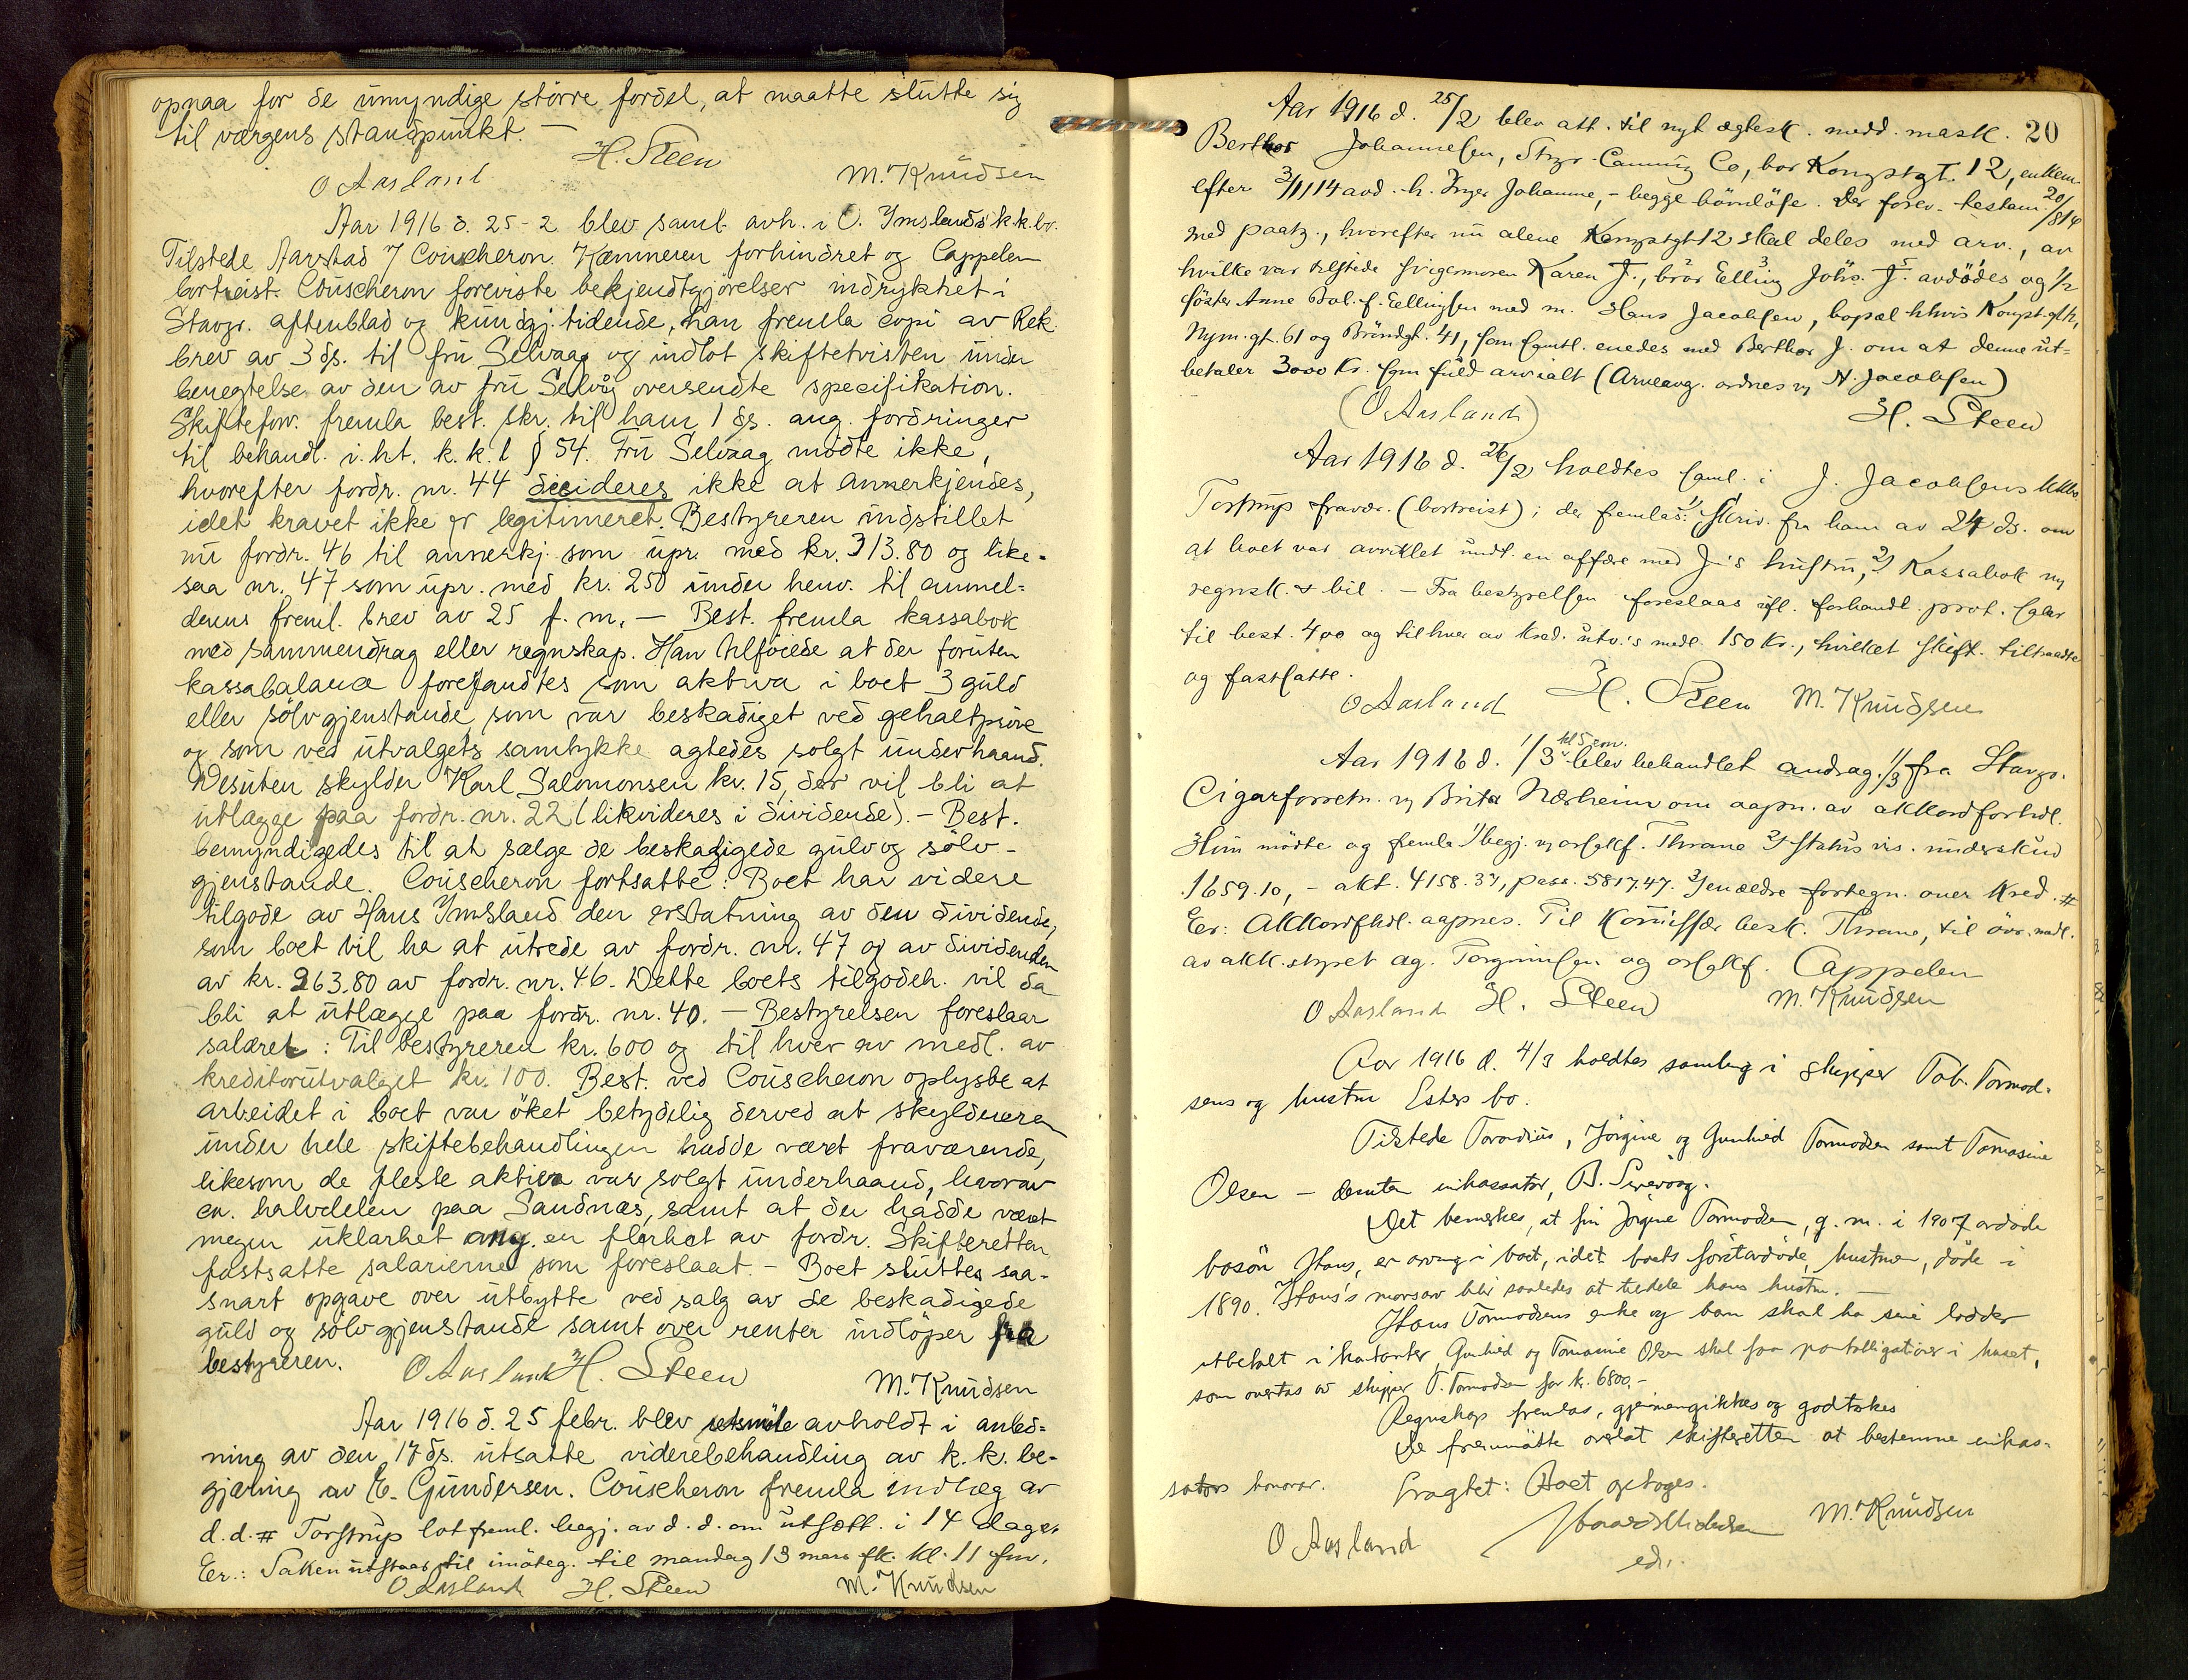 opnaa for de umyndige større fordel, at maatte slutte sig
til værgens standpunkt. —
H. Steen
O Aasland M. Knudsen
Aar 1916 d. 25-2 blev saml. avh. i O. Ymslands k.k.bo.
Tilstede Aarstad & Couscheron. Kæmneren forhindret og Cappelen
bortreist. Couscheron foreviste bekjendtgjørelser indrykket i
Stavgr. aftenblad og kundgj. tidende, han fremla copi av Rek.
brev av 3 ds. til fru Selvaag og indlot skiftetvisten under
benegtelse av den av fru Selvåg oversendte specifikation.
Skifteforv. fremla best. skr. til ham 1 ds. ang. fordringer
til behandl. i.ht. k.k.l § 54. Fru Selvaag mødte ikke,
hvorefter fordr. nr. 44 decideres ikke at anerkjendes,
idet kravet ikke er legitimeret. Bestyreren indstillet
nu fordr. 46 til annerkj. som upr. med kr. 313.80 og like-
saa nr. 47 som upr. med kr. 250 under henv. til anmel-
derens freml. brev av 25 f. m. — Best. fremla kassabok
med sammendrag eller regnskap. Han tilføiede at der foruten
kassabalance forefandtes som aktiva i boet 3 guld
eller sølvgjenstande som var beskadiget ved gehaltprøve
og som ved utvalgets samtykke agtedes solgt underhaand.
Desuten skylder Karl Salomonsen kr. 15, der vil bli at
utlægge paa fordr. nr. 22 (likvideres i dividende). — Best.
bemyndigedes til at sælge de beskadigede gulv og sølv-
gjenstande. Couscheron fortsatte: Boet har videre
tilgode av Hans Ymsland den erstatning av den dividende,
som boet vil ha at utrede av fordr. nr. 47 og av dividenden
av kr. 263.80 av fordr. nr. 46. Dette boets tilgodeh. vil da
bli at utlægge paa fordr. nr. 40. — Bestyrelsen foreslaar
salæret: Til bestyreren kr. 600 og til hver av medl. av
kreditorutvalget kr. 100. Best. ved Couscheron oplyste at
arbeidet i boet var øket betydelig derved at skyldneren
under hele skiftebehandlingen hadde været fraværende,
likesom de fleste aktiva var solgt underhaand, hvorav
en halvdelen paa Sandnæs, samt at der hadde været
megen uklarhet ang. en flerhet av fordr. Skifteretten
fastsatte salærerne som foreslaat. — Boet sluttes saa-
snart opgave over utbytte ved salg av de beskadigede
guld og sølvgjenstande samt over renter indløper fra
bestyreren. O Aasland H. Steen
M. Knudsen
Aar 1916 d. 25 febr. blev retsmøte avholdt i anled-
ning av den 17 ds. utsatte viderebehandling av k.k. be-
gjæring av E. Gundersen. Couscheron fremla indlæg av
d.d. # Torstrup lot freml. begj. av d.d. om utsætt. i 14 dager
Er.: Saken utstaar til imøteg. til mandag 13 mars fk. kl. 11 fm.
O Aasland H. Steen M. Knudsen
20
Aar 1916 d. 25/2 blev att. til nyt ægtesk. medd. mask.
Berthor Johannesen, Stvgr. Canning Co, bor Kongsgt. 12, enkem.
efter 3/11 14 avd. h. Inger Johanne, - begge börnlöse. Der forev. testam. 20/8 14
med paateg., hvorefter nu alene Kongsgt 12 skal deles med arv., av
hvilke var tilstede svigermoren Karen J., bror Elling Johs. J. avdödes og 1/2
söster Anne f. Ellingsen med m. Hans Jacobsen, bopæl hhvis Kongsgt 12,
Nym.gt. 61 og Bröndgt. 41, som samtl. enedes med Berthor J. om at denne ut-
betaler 3000 Kr. som fuld arv ialt (Arveavg. ordnes v. H. Jacobsen)
(O Aasland) H. Steen
Aar 1916 d. 26/2 holdtes saml. i J. Jacobsens kkbo
Torstrup fravær. (bortreist); der fremlas: 1) skriv. fra ham av 24 ds. om
at boet var avviklet undt. en affære med J's hustru, 2) Kassabok og
regnsk. & bil. — Fra bestyrelsen foreslaas ifl. forhandl. prot. salær
til best. 400 og til hver av kred. utv.'s medl. 150 Kr., hvilket skift. tiltraadte
og fastsatte.
O Aasland H. Steen M. Knudsen
Aar 1916 d. 1/3 kl 5 em. blev behandlet andrag. 1/3 fra Stavgr.
Cigarforretn. v. Brita Nærheim om aapn. av akkordforhdl.
Hun mödte og fremla 1) begj. v. orsakf. Thrane 2) status vis. underskud
1659.10, - akt. 4158.37, pass. 5817.47. 3) en ældre fortegn. over kred. #
Er: Akkordfhdl. aapnes. Til Komissær besk. Thrane, til övr. medl.
av akk.styret ag. Torginnsen og orsakf. Cappelen
O Aasland H. Steen M. Knudsen
Aar 1916 d. 4/3 holdtes samling i skipper Tob. Tormod-
sens og hustru Esters bo.
Tilstede Torodius, Jörgine og Gunhild Tormodsen samt Tomasine
Olsen — desuten inkassator, B. Sirevaag.
Det bemerkes, at fru Jörgine Tormodsen, g. m. i 1907 avdöde
bosön Hans, er arving i boet, idet boets förstavdöde, hustruen, döde i
1890. Hans's morsarv blir saaledes at tildele hans hustru. —
Hans Tormodsens enke og barn skal ha sine lodder
utbetalt i kontanter, Gunhild og Tomasine Olsen skal faa pantobligationer i huset,
som overtas av skipper T. Tormodsen for kr. 6800,-
Regnskap fremlas, gjennemgikkes og godtokes
De fremmötte overlot skifteretten at bestemme inkas-
sators honorar. Eragtet: Boet optoges.
O Aasland M. Knudsen
edv.